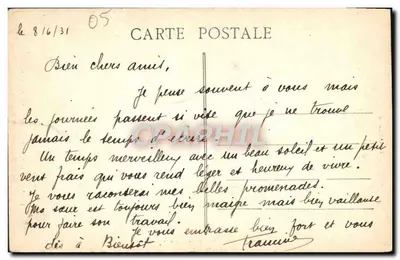 le 8/6/31
05
CARTE POSTALE
Bien chers amis,
Je pense souvent à vous mais
les journées passent si vite que je ne trouve
jamais le temps d'écrire.
Un temps merveilleux avec un beau soleil et un petit
vent frais qui vous rend léger et heureux de vivre.
Je vous raconterai mes belles promenades.
est toujours bien maigre mais bien vaillante
pour faire son travail.
Je vous embrasse bien fort et vous
dis à Bientôt